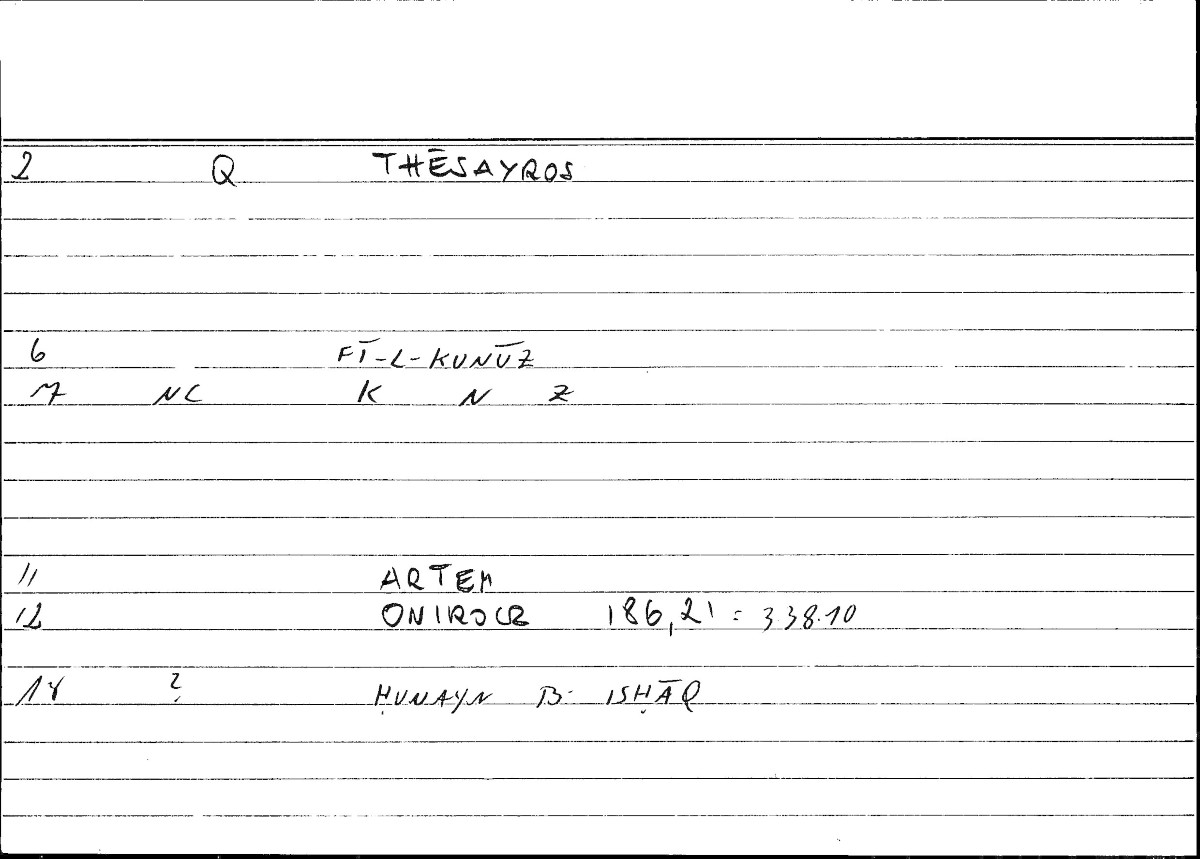 2 Q THĒSAYROS
6 FĪ-L-KUNŪZ
7 NC K N Z
11 ARTEM
12 ONIROCR 186,21 = 338.10
18 ? ḤUNAYN B. ISḤĀQ